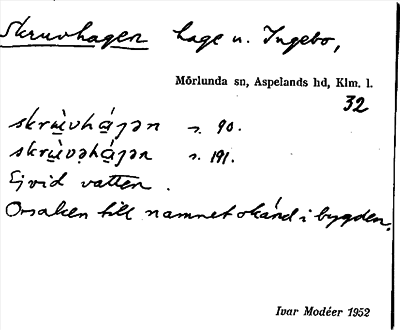 Skruvhagen hage u. Ingebo,
Mörlunda sn, Aspelands hd, Klm. l.
32
skrùvhájən s. 90.
skrùvəhájən s. 191.
Ej vid vatten.
Orsaken till namnet okänd i bygden.
Ivar Modéer 1952